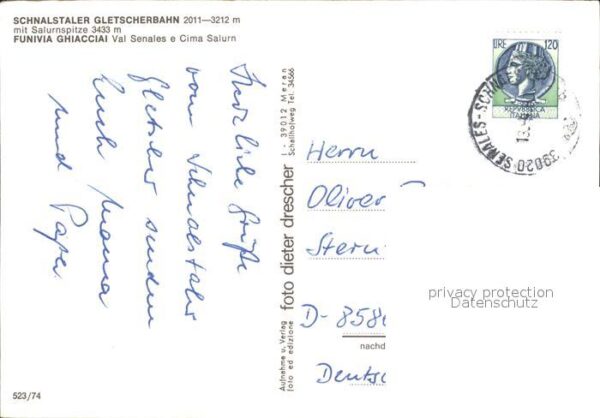 SCHNALSTALER GLETSCHERBAHN 2011—3212 m
mit Salurnspitze 3433 m
FUNIVIA GHIACCIAI Val Senales e Cima Salurn
Herzliche Grüße
vom Schnalstaler
Gletscher senden
Euch Mama
und Papa
Aufnahme u. Verlag
foto ed edizione
foto dieter drescher
I - 39012 Meran
Schallhofweg Tel. 34566
LIRE 120
REPVBBLICA
ITALIANA
39020 SENALES - SCHNALS
Herrn
Oliver
Stern
D-858
nachd
Deutsc
privacy protection
Datenschutz
523/74